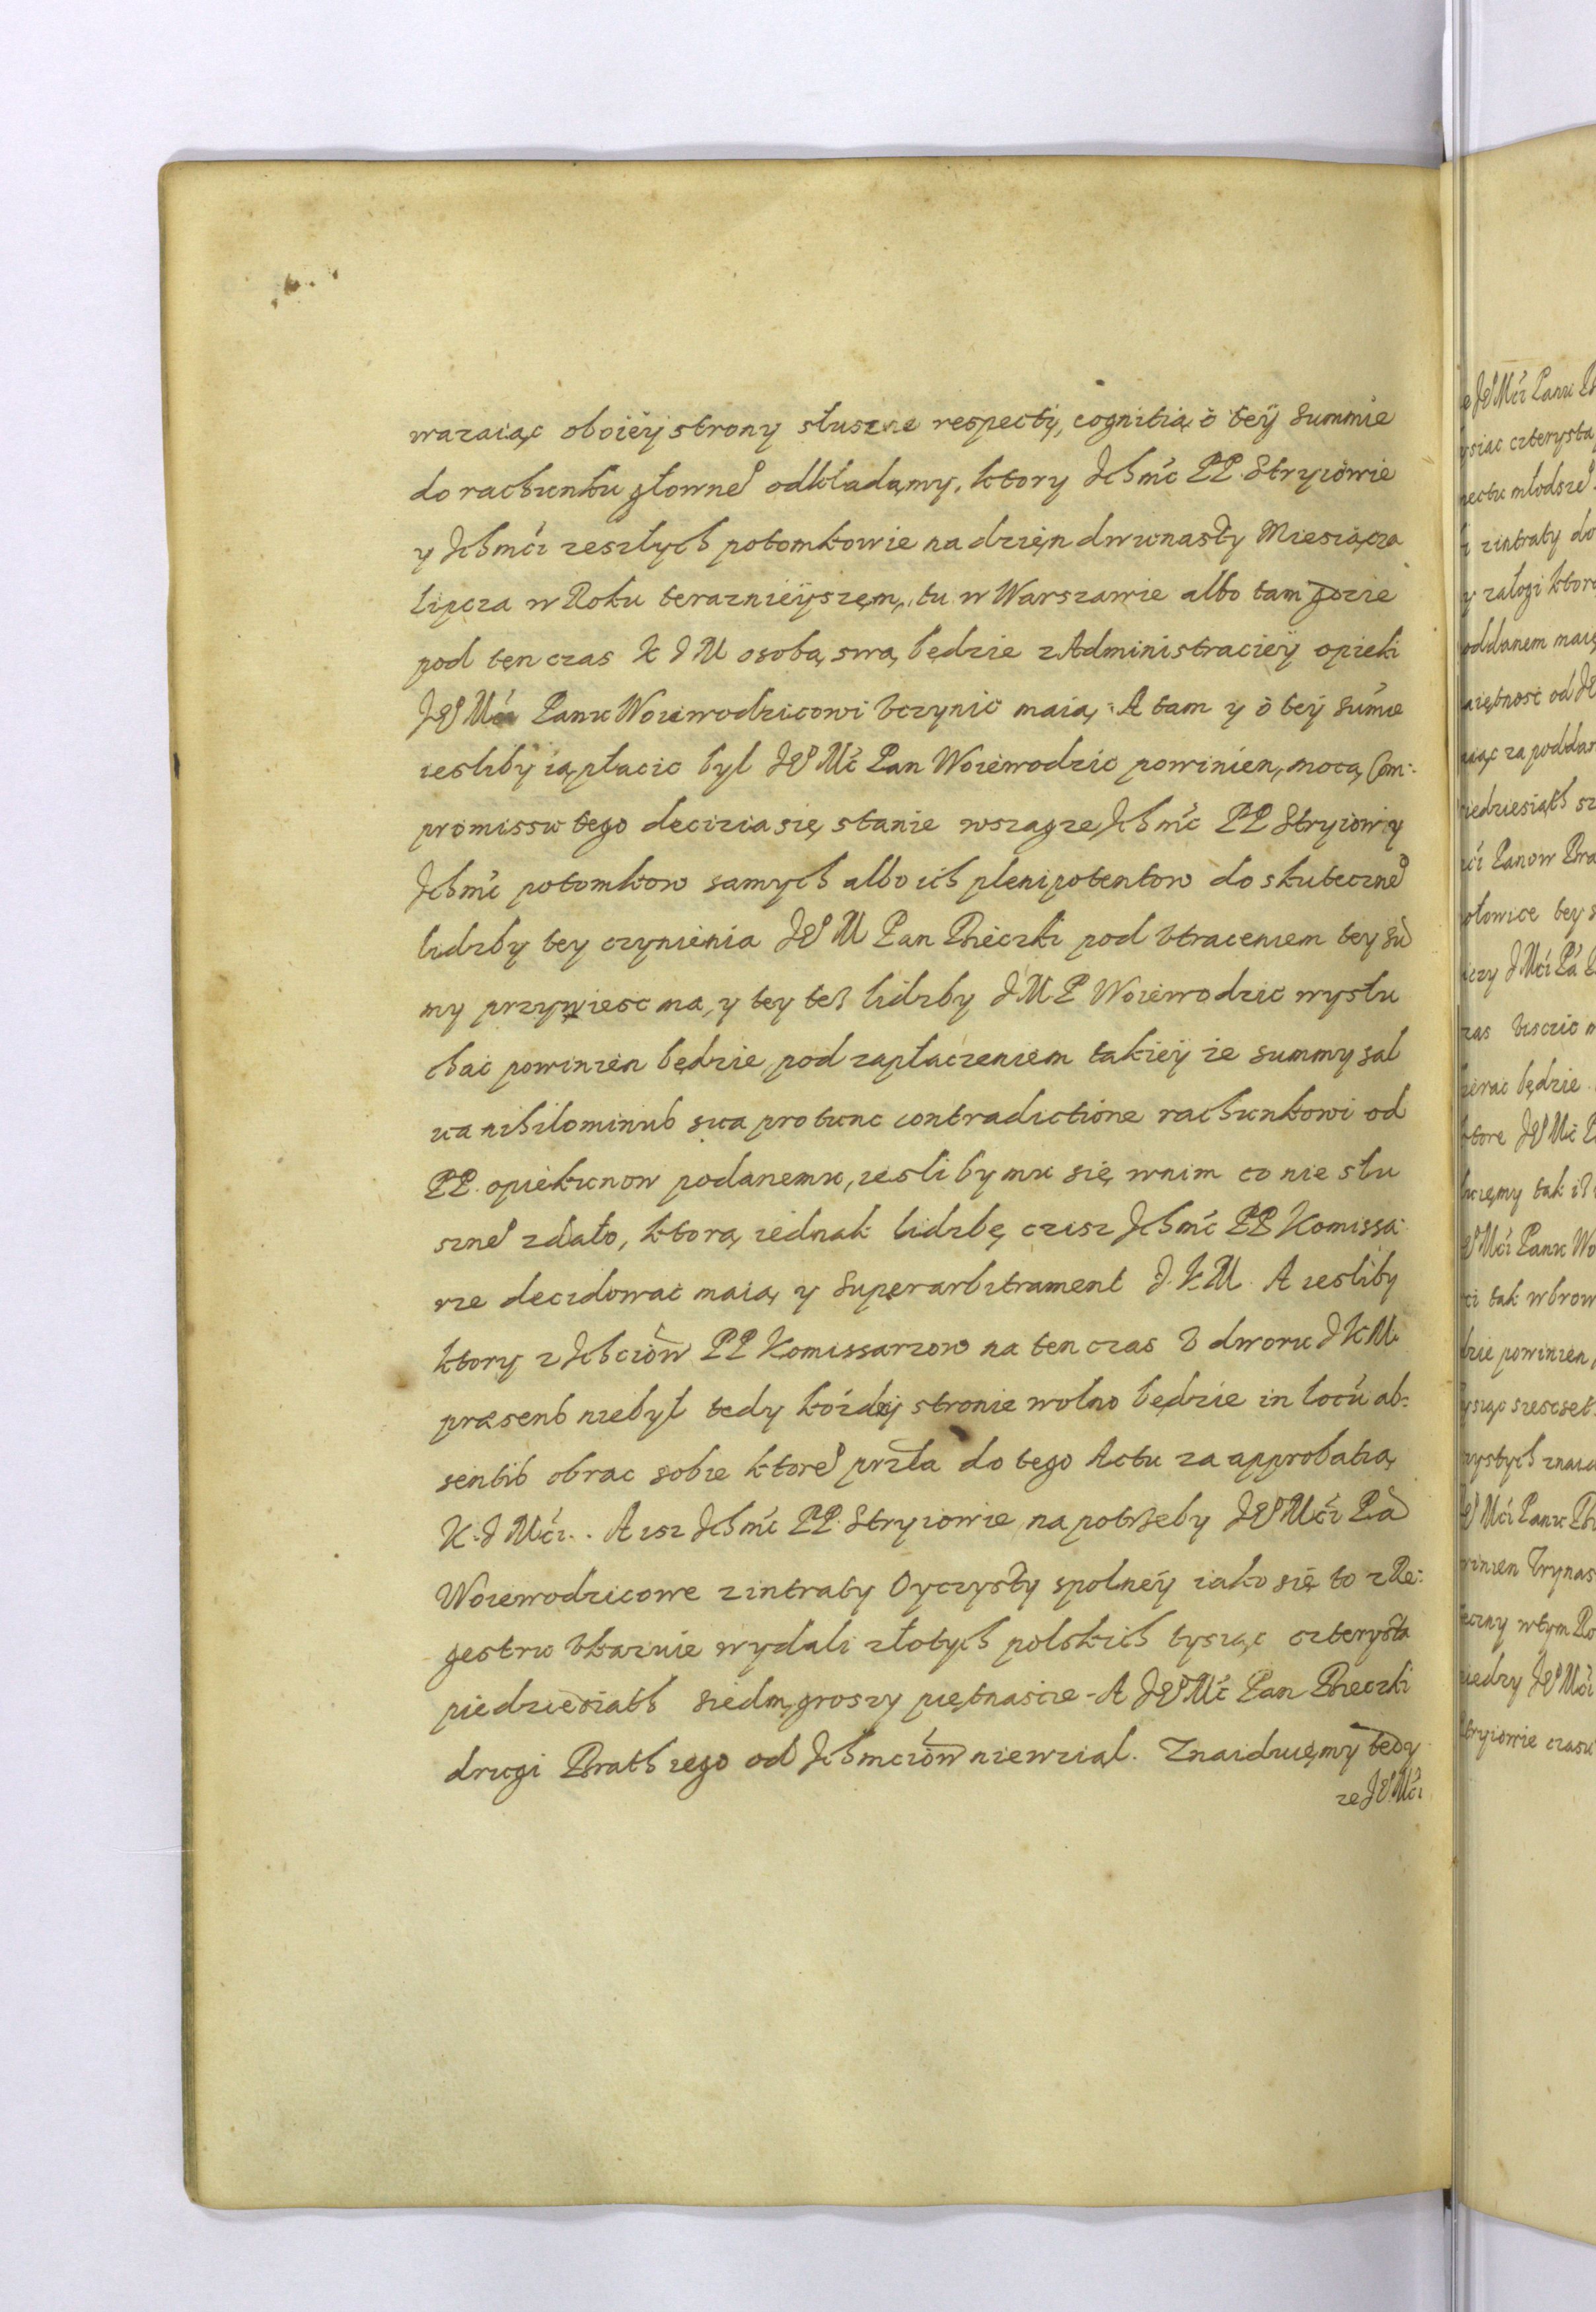 wazaiąc oboiey strony słuszne respecty, cognitią o tey Summie
do rachunku głowne odkładamy, ktory Ichmc PP. Stryiowie
y Ichmci zeszłych potomkowie na dzięn dwunasty Miesiącza
lipcza w Roku teraznieyszęm, tu w Warszawie albo tam gdzie
pod tęn czas K J M osobą swą będzie z Administraciey opieki
JW Panu Woiewodzicowi Vczynic maią. A tam y o tey sumie
iesliby ią płacic był JW Mc Pan Woiewodzic powinien, mocą Com:
promissu tego deciziasię stanie wszagze Ichmc PP Stryiow y
Ichmc potomkow samych albo ich plenipotentow do skuteczne
lidzby tey czynienia JW M Pan Rzeczki pod Vtraceniem tey su
my przywiesc ma, y tey tesz lidzby J M P Woiewodzic wysłu
chac powinien będzie, pod zapłaczeniem takiey ze summy sal
ua nihilominus sua protunc contradictione rachunkowi od
PP. opiekunow podanemu, iesliby mu się wnim co nie słu
szne zdało, ktorą iednak lidzbę czisz Ichmc PP Komissa:
rze decidowac maią y Superarbitrament J. K M. A iesliby
ktory z Ichciow PP Komissarzow na ten czas V dworu J K M
præsens niebył tedy kozdey stronie wolno będzie in locu ab:
sentis obrac sobie ktore do tego Actu za approbatią
K. J Mci. A isz Ichmc PP. Stryiowie na potrzeby JW Mci Pa
Woiewodzicowe z intraty Oyczysty spolney iako się to z Re:
gestru Vkazuie wydali złotych polskich tysiąc czterysta
piedziesiath siedm, groszy piętnascie - A JW Mc Pan Rzeczki
drugi Brath iego od Ichmciow niewział. Znaiduięmy tedy
ze JW Mci